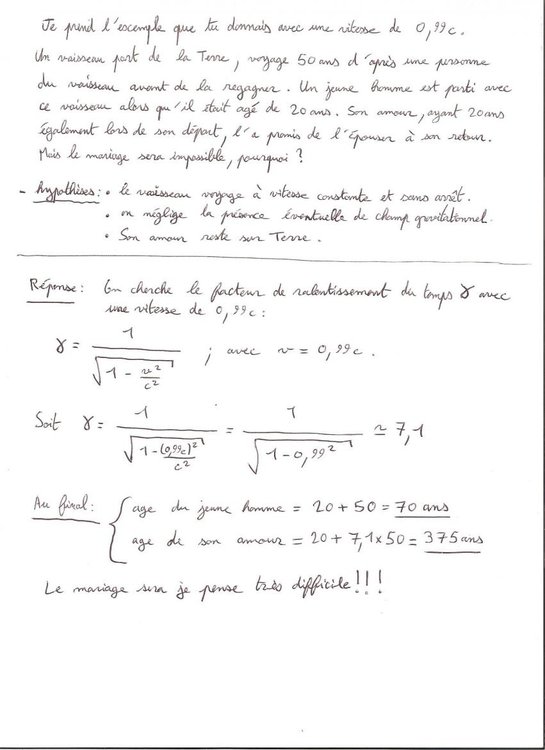 Je prend l'exemple que tu donnais avec une vitesse de 0,99c.
Un vaisseau part de la Terre, voyage 50 ans d'après une personne
du vaisseau avant de la regagner. Un jeune homme est parti avec
ce vaisseau alors qu'il était agé de 20 ans. Son amour, ayant 20 ans
également lors de son départ, l'a promis de l'épouser à son retour.
Mais le mariage sera impossible, pourquoi ?
- Hypothèses : • le vaisseau voyage à vitesse constante et sans arrêt.
• on néglige la présence éventuelle de champ gravitationnel.
• Son amour reste sur Terre.
Réponse : On cherche le facteur de ralentissement du temps γ avec
une vitesse de 0,99c :
γ = 1 / √(1 - v²/c²) ; avec v = 0,99c.
Soit γ = 1 / √(1 - (0,99c)²/c²) = 1 / √(1 - 0,99²) ≃ 7,1
Au final : { age du jeune homme = 20 + 50 = 70 ans
age de son amour = 20 + 7,1 × 50 = 375 ans
Le mariage sera je pense très difficile !!!